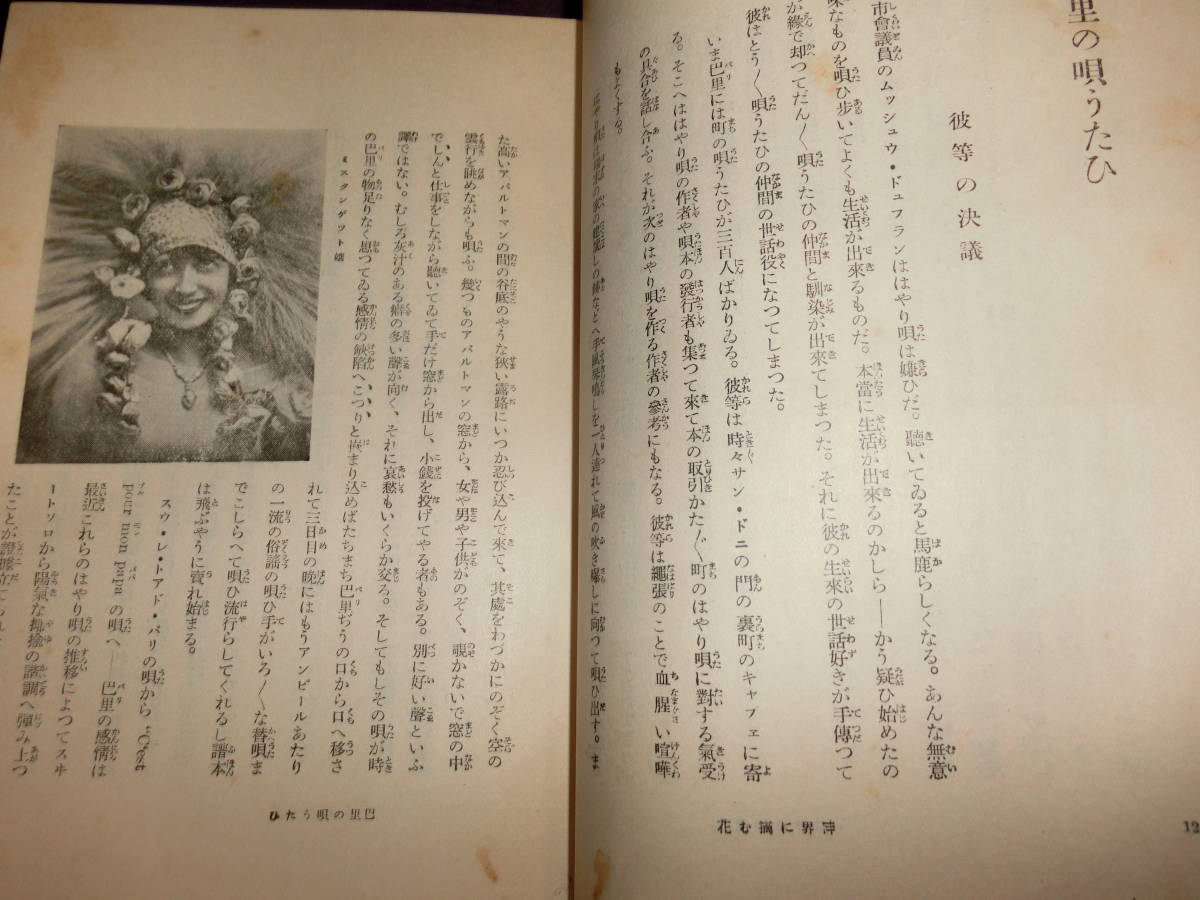 里の唄うたひ
彼等の決議
市會議員のムッシュウ・ドュフランははやり唄は嫌ひだ。聽いてゐると馬鹿らしくなる。あんな無意
味なものを唄ひ歩いてよくも生活が出來るものだ。本當に生活が出來るのかしら――かう疑ひ始めたの
が緣で却つてだん〳〵唄うたひの仲間と馴染が出來てしまつた。それに彼の生來の世話好きが手傳つて
彼はとう〳〵唄うたひの仲間の世話役になつてしまつた。
いま巴里には町の唄うたひが三百人ばかりゐる。彼等は時々サン・ドニの門の裏町のキャフェに寄
る。そこへははやり唄の作者や唄本の發行者も集つて來て本の取引かた〴〵町のはやり唄に對する氣受
の具合を話し合ふ。それが次のはやり唄を作る作者の參考にもなる。彼等は繩張のことで血腥い喧嘩
もよくする。
手風琴鳴しを一人連れて風の吹き曝しに向つて唄ひ出す。ま
12
花む摘に界世
た高いアパルトマンの間の谷底のやうな狹い露路にいつか忍び込んで來て、其處をわづかにのぞく空の
雲行を眺めながらも唄ふ。幾つものアパルトマンの窓から、女や男や子供がのぞく、覗かないで窓の中
でしんと仕事をしながら聽いてゐて手だけ窓から出し、小錢を投げてやる者もある。別に好い聲といふ
譯ではない。むしろ灰汁のある癖の多い聲が向く、それに哀愁もいくらか交る。そしてもしその唄が時
の巴里の物足りなく思つてゐる感情の缺陷へこつりと嵌まり込めばたちまち巴里ぢうの口から口へ移さ
れて三日目の晩にはもうアンピールあたり
の一流の俗謠の唄ひ手がいろ〳〵な替唄ま
でこしらへて唄ひ流行らしてくれるし譜本
は飛ぶやうに賣れ始まる。
スウ・レ・トアド・パリの唄から “C'est
pour mon papa の唄へ――巴里の感情は
最近これらのはやり唄の推移によつてスヰ
ートソロから陽氣な揶揄の諧調へ彈み上つ
たことが證據立てられ
ミスタンゲット孃
ひたう唄の里巴